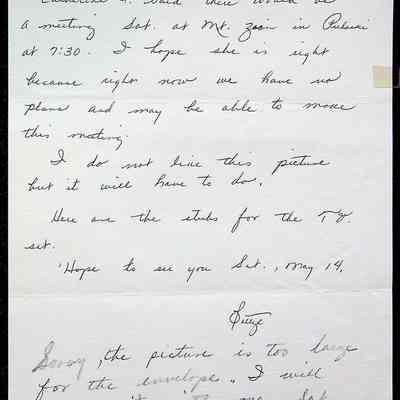 Catherine H. said there would be
a meeting Sat. at Mt. Zion in Pulaski
at 7:30. I hope she is right
because right now we have no
plans and may be able to make
this meeting.
I do not like this picture
but it will have to do.
Here are the stubs for the TV
set.
Hope to see you Sat., May 14.
Sorry, the picture is too large
for the envelope. I will
it to me Sat